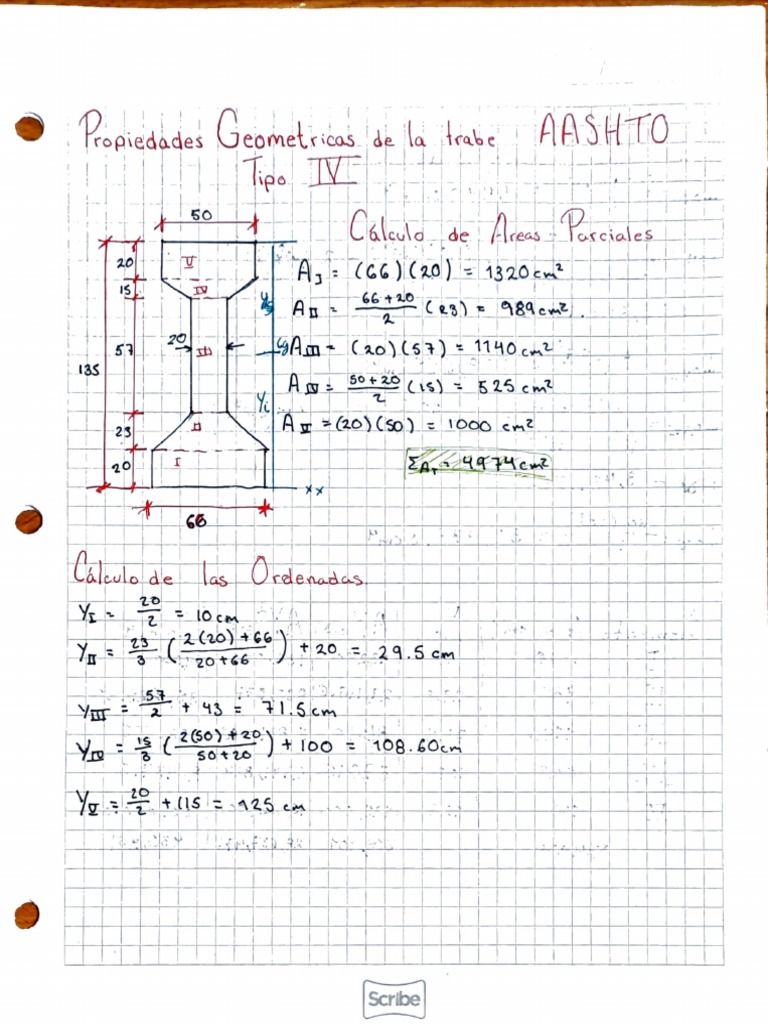 Propiedades Geometricas de la trabe AASHTO
Tipo IV
50
Cálculo de Areas Parciales
20
15
57
23
20
135
20
66
V
IV
III
II
I
ys
cg
yi
xx
A_I = (66)(20) = 1320 cm²
A_II = 66+20/2 (23) = 989 cm²
A_III = (20)(57) = 1140 cm²
A_IV = 50+20/2 (15) = 525 cm²
A_V = (20)(50) = 1000 cm²
ΣA_T = 4974 cm²
Cálculo de las Ordenadas
Y_I = 20/2 = 10 cm
Y_II = 23/3 (2(20)+66/20+66) + 20 = 29.5 cm
Y_III = 57/2 + 43 = 71.5 cm
Y_IV = 15/3 (2(50)+20/50+20) + 100 = 108.60 cm
Y_V = 20/2 + 115 = 125 cm
Scribe